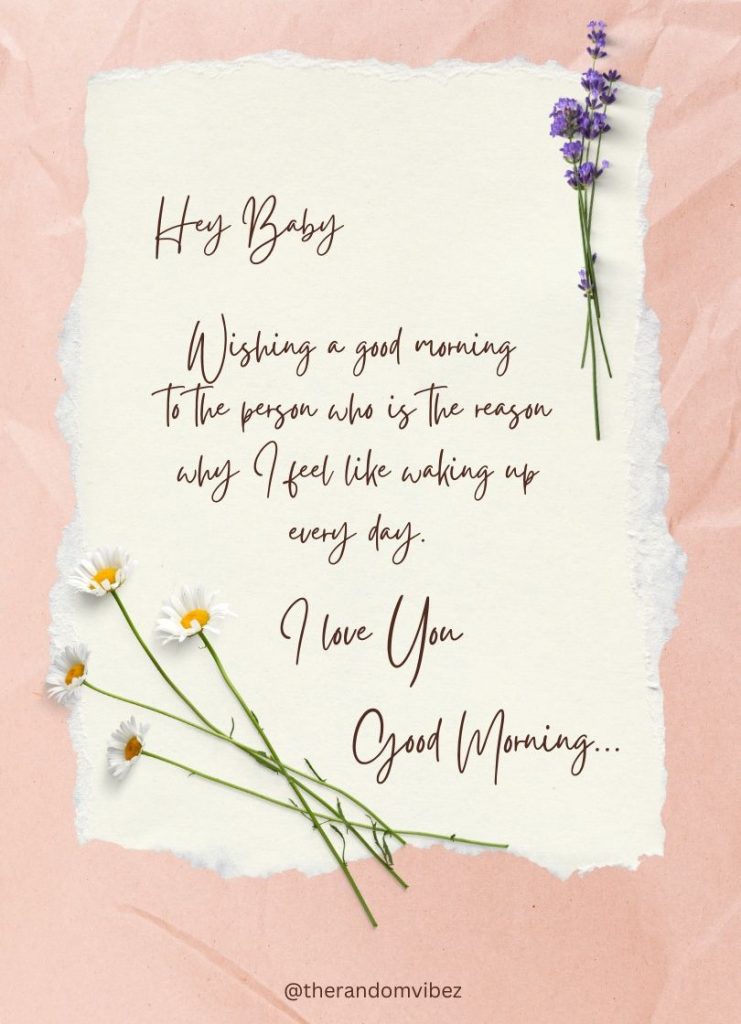 Hey Baby
Wishing a good morning
to the person who is the reason
why I feel like waking up
every day.
I love You
Good Morning...
@therandomvibez